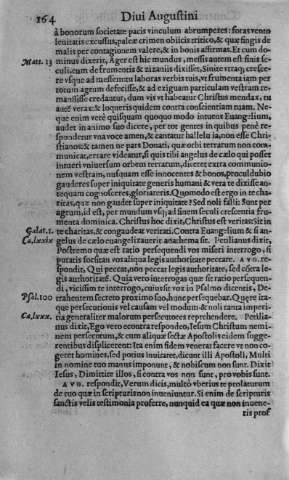 164 Diui Augustini
à bonorum societate pacis vinculum abrumperet: foras vento
leuitatis excussus, paleæ crimen obiicis tritico, & quæ fingis de
malis per contagionem valere, & in bonis affirmas. Et cum do-
Matt. 13 minus dixerit, Ager est hic mundus, messis autem est finis se-
culi, cum de frumentis & zizaniis dixisset, Sinite vtraq; cresce-
re vsque ad messem:
totum agrum defecisse, & ad exiguam particulam vestram re-
mansisse credantur, dum vis vt habeatur Christus mendax, tu
autem verax: & loqueris quidem contra conscientiam tuam. Ne-
que enim verè quisquam quoquo modo intuens Euangelium,
audet in animo suo dicere, per tot gentes in quibus penè re-
spondetur vna voce amen, & cantatur halleluia, non esse Chri-
stianos: & tamen ne pars Donati, quæ orbi terrarum non com-
municat, errare videatur, si quis tibi angelus de cælo qui posset
intueri vniuersum orbem terrarum, diceret extra communio-
nem vestram, nusquam esse innocentes & bonos, procul dubio
gauderes super iniquitate generis humani & vera te dixisse an-
tequam cognosceres, gloriareris. Quomodo est ergo in te cha-
ritas, quæ non gaudet super iniquitate? Sed noli falli: Sunt per
agrum, id est, per mundum vsq; ad finem seculi crescentia fru-
menta dominica. Christus hoc dixit, Christus est veritas: Sit in
Galat. 1. te charitas, & congaudeas veritati. Contra Euangelium & si an-
Ca. lxxix gelus de cælo euangelizauerit anathema sit. Petilianus dixit,
Postremò quæ est ratio persequendi vos miseri interrogo, si
putatis societas vos aliqua legis authoritate peccare. AVG. re-
spondit, Qui peccat, non peccat legis authoritate, sed contra le-
gis authoritatem. Quia verò interrogas quæ sit ratio persequen-
di, vicissim te interrogo, cuius sit vox in Psalmo dicentis, De-
Psal. 100 trahentem secretò proximo suo, hunc persequebar. Quære ita-
que persecutionis vel causam vel modum: & noli tanta imperi-
Ca. lxxx. tia generaliter malorum persecutores reprehendere. Petilia-
nus dixit, Ego verò econtra respondeo, Iesum Christum nemi-
nem persecutum, & cum aliquæ sectæ Apostolis eidem sugge-
rentibus displicerent: Ita enim fidem venerat facere vt non co-
geret homines, sed potius inuitaret, dicunt illi Apostoli, Multi
in nomine tuo manus imponunt, & nobiscum non sunt. Dixit
Iesus, Dimittite illos, si contra vos non sunt, pro vobis sunt.
AVG. respondit, Verum dicis, multò vberius te prolaturum
de tuo quæ in scripturis non inueniuntur. Si enim de scripturis
sanctis velis testimonia proferre, nunquid ea quæ non inuene-
ris prof